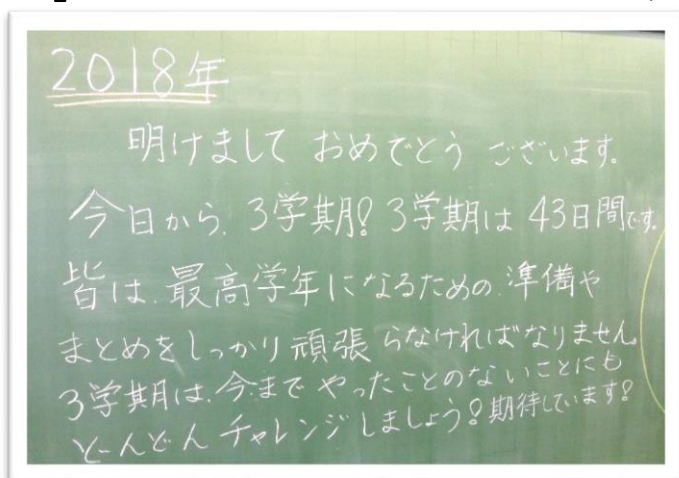 2018年
明けまして おめでとう ございます。
今日から、3学期! 3学期は 43日間です。
皆は、最高学年になるための、準備や
まとめをしっかり頑張らなければなりません。
3学期は、今までやったことのないことにも
どーんどんチャレンジしましょう!期待しています!